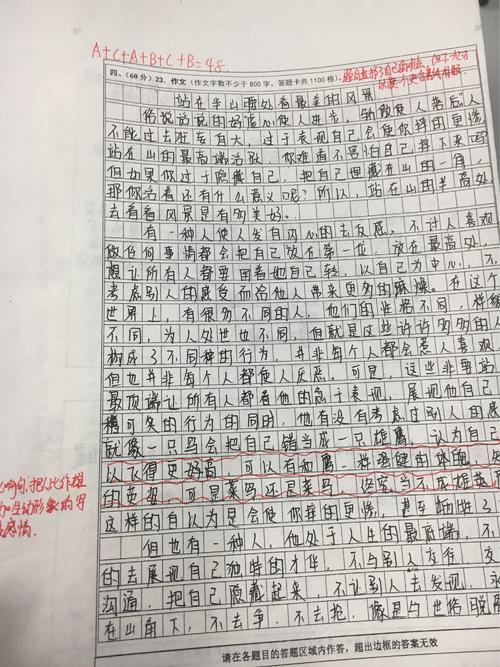 A+C+A+B+C+B=48
四、(60分) 23. 作文（作文字数不少于800字，答题卡共1100格）。
站在半山腰处看最美的风景
俗说话说的好虚心使人进步，骄傲使人落后，人
不能过去狂妄自大，过于表现自己会使你摔的更惨
站在山的最高端活跃，你难看不害怕自己摔下来吗
但如果你过于隐藏自己，把自己埋藏在山的一角，
那你活着还有什么意义呢？所以，站在山的半高处
去看看风景是有多美好。
有一种人使人发自内心的去反感，不讨人喜观
做任何事情都会把自己放在第一位，放在最高处，
想让所有人都要围着她自己转，以自己为中心，不
考虑别人的感受而给他人带来更多的麻烦。在这个
世界上，有很多不同的人，他们的性格不同，样貌
不同，为人处世也不同，但就是这些许许多多的人
构成了不同种的行为，并非每个人都会惹人喜观
但也并非每个人都使人反感。可是，这些非要站
最顶端让所有人都看他的急于表现，展现他自己
可笑的行为的同时，他有没有考虑过别人的感
就像一只鸟会把自己错当成一只雄鹰，认为自己
以飞得更好高，可以有和鹰一样强健的体魄，
的
，可是菜鸟还是菜鸟，终究当不成雄鹰
这样的自以为是会使你摔的更惨，
但也有一种人，他处于人生的最底端，不
的去展现自己独特的才华，不与别人交往，交
沟通，把自己隐藏起来，不让别人去发现，
在山角下，不去争，不去抢，像是与世俗脱
请在各题目的答题区域内作答，超出边框的答案无效
句，把人比作雄
加生动形象的写
感情。